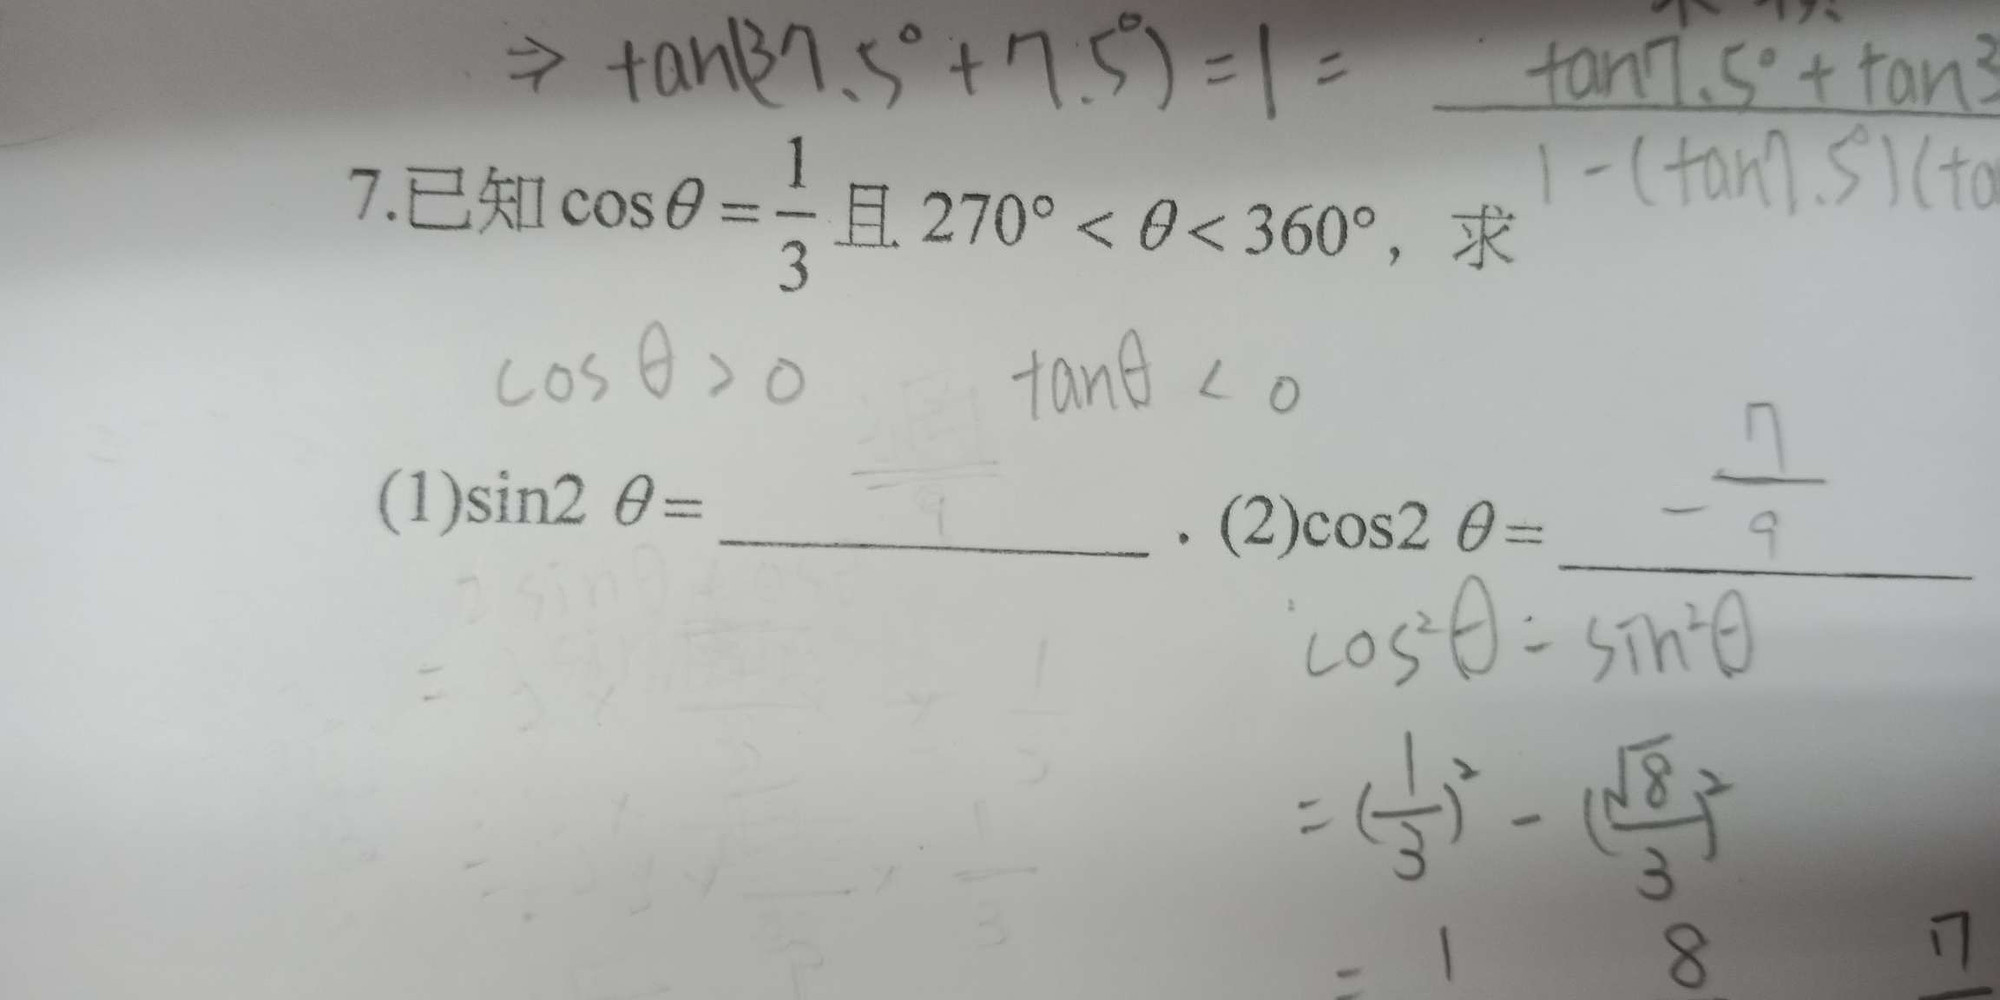 ⇒ tan(37.5° + 7.5°) = 1 = (tan7.5° + tan3)/(1 - (tan7.5°)(ta
7.已知 cosθ = 1/3 且 270° < θ < 360°, 求
cosθ > 0 tanθ < 0
(1)sin2 θ= . (2)cos2 θ= -7/9
cos²θ - sin²θ
= (1/3)² - (√8/3)²
= 1 8 7